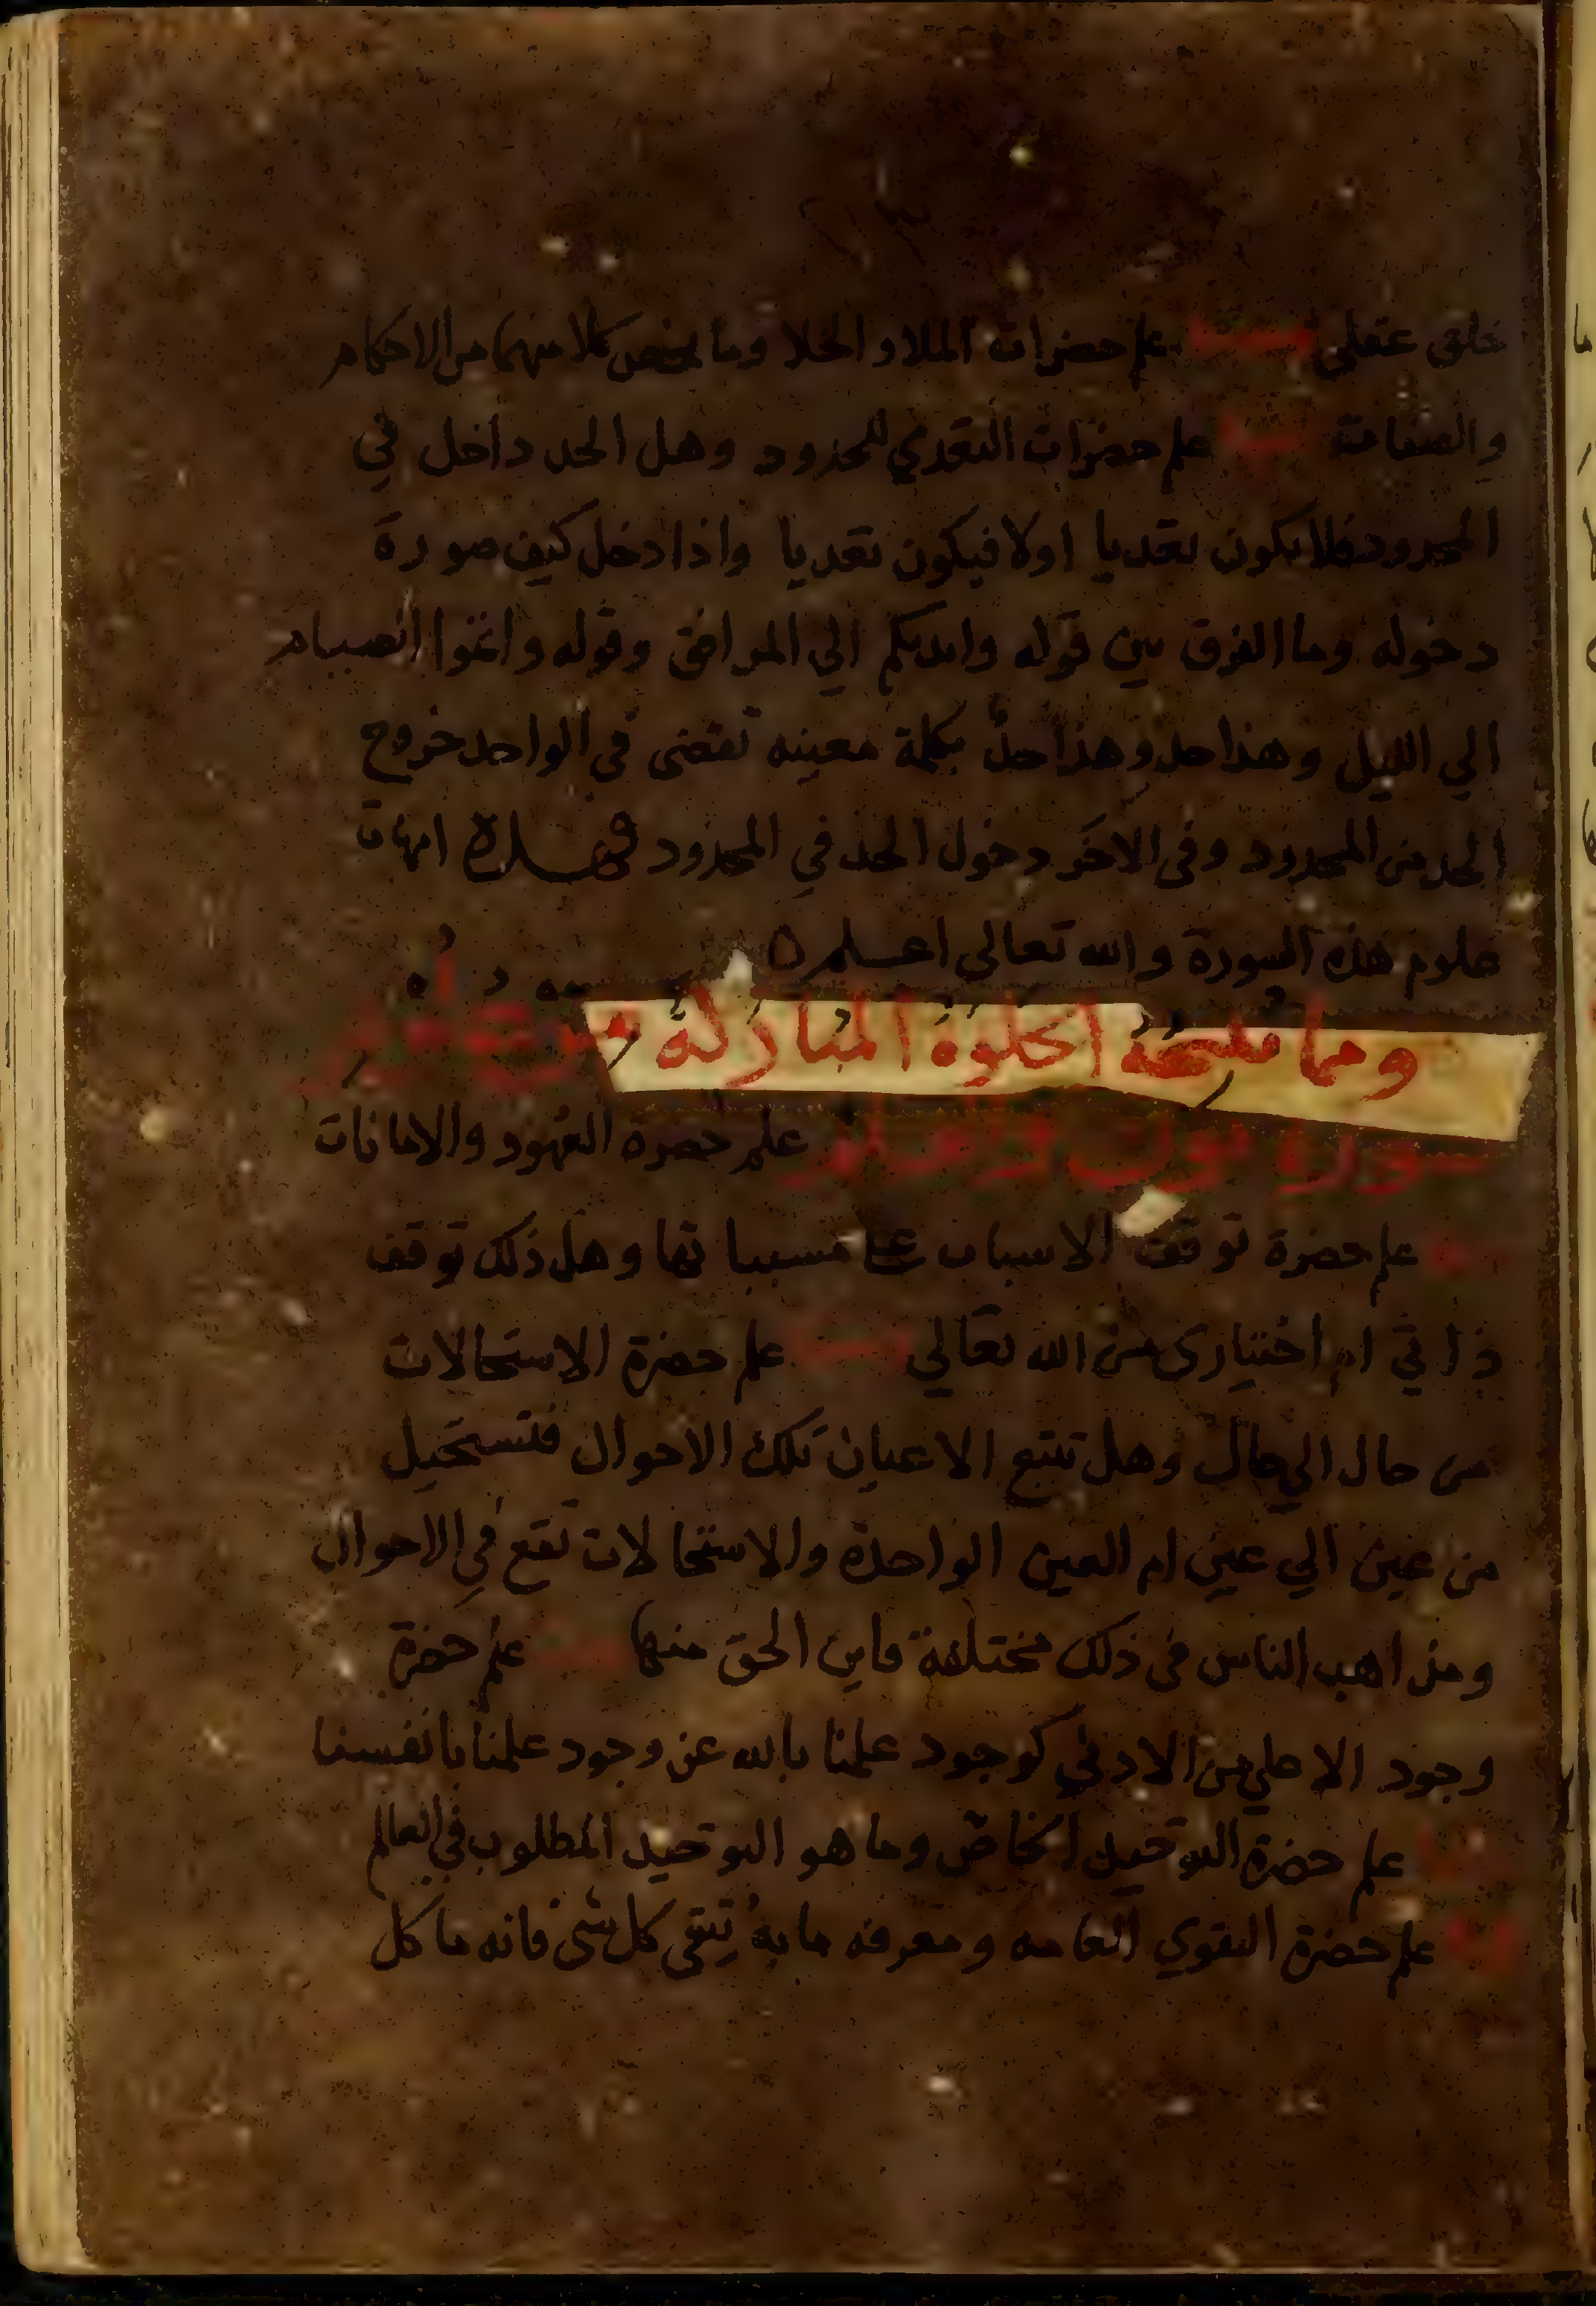 خلق عقلي ومنها علم حضرات الملا والخلا وما يختص كلا منهما من الاحكام
والصفات ومنها علم حضرات التعدي للحدود وهل الحد داخل في
المحدود فلا يكون تعديا اولا فيكون تعديا واذا دخل كيف صورة
دخوله وما الفرق بين قوله وايديكم الي المرافق وقوله واتموا الصيام
الي الليل وهذا حد وهذا حد بكلمة معينه تقضى في الواحد خروج
الحد من المحدود وفى الاخر دخول الحد في المحدود فهذه امهات
علوم هذه السورة والله تعالى اعلم ٥
وما تنتجه الخلوة المباركة من
سورة علم حضرة العهود والامانات
علم حضرة توقف الاسباب على مسبباتها وهل ذلك توقف
ذاتي ام اختيارى من الله تعالي ومنها علم حضرة الاستحالات
من حال الي حال وهل تتبع الاعيان تلك الاحوال فتستحيل
من عين الي عين ام العين الواحدة والاستحالات تقع في الاحوال
ومذاهب الناس فى ذلك مختلفة فاين الحق منها ومنها علم حضرة
وجود الاعلي من الادني كوجود علمنا بالله عن وجود علمنا بانفسنا
ومنها علم حضرة التوحيد الخاص وما هو التوحيد المطلوب في العالم
ومنها علم حضرة التقوي العامه ومعرفه ما به يتقى كل شى فانه ما كل